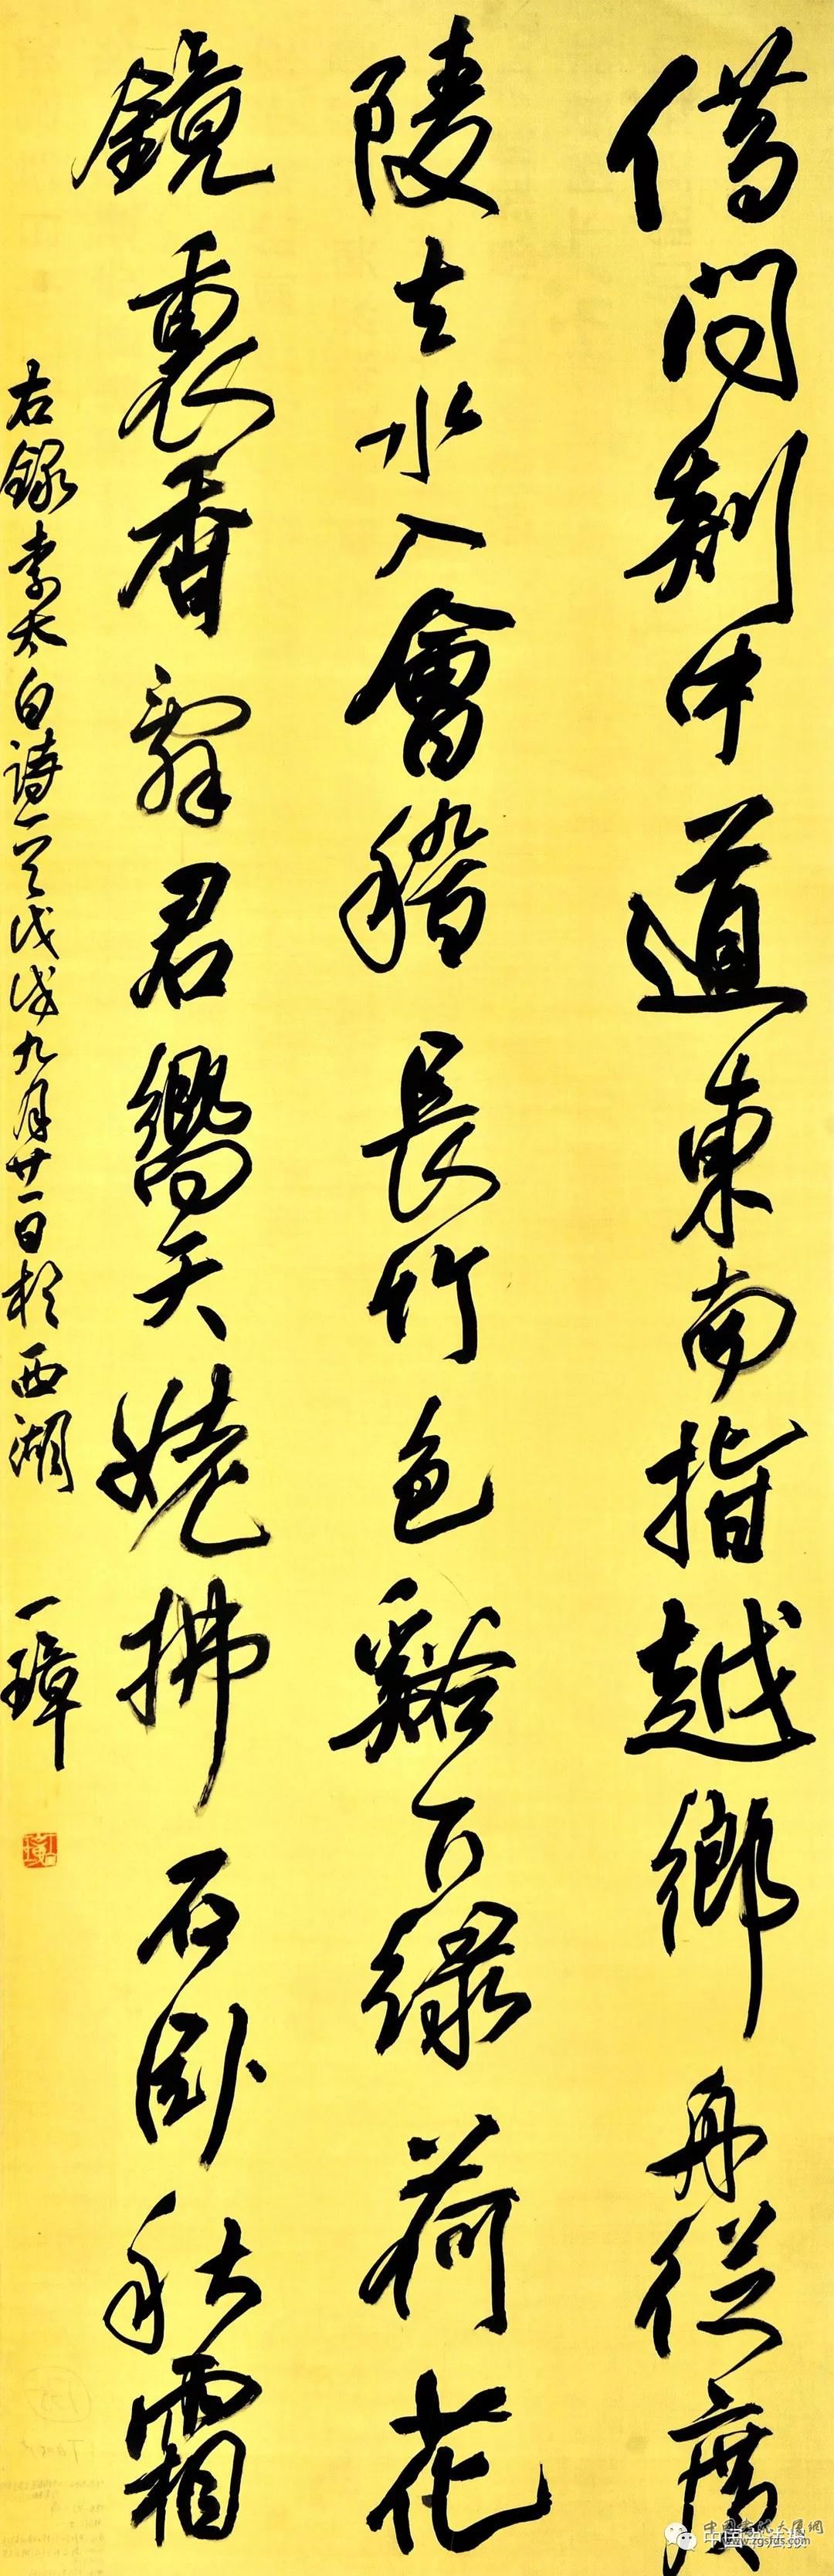 借問剡中道東南指越鄉舟從廣
陵去水入會稽長竹色谿下綠荷花
鏡裏香辭君嚮天姥拂石臥秋霜
右錄李太白詩一首戊戌九月廿一日於西湖 一璋
www.zgsfds.com